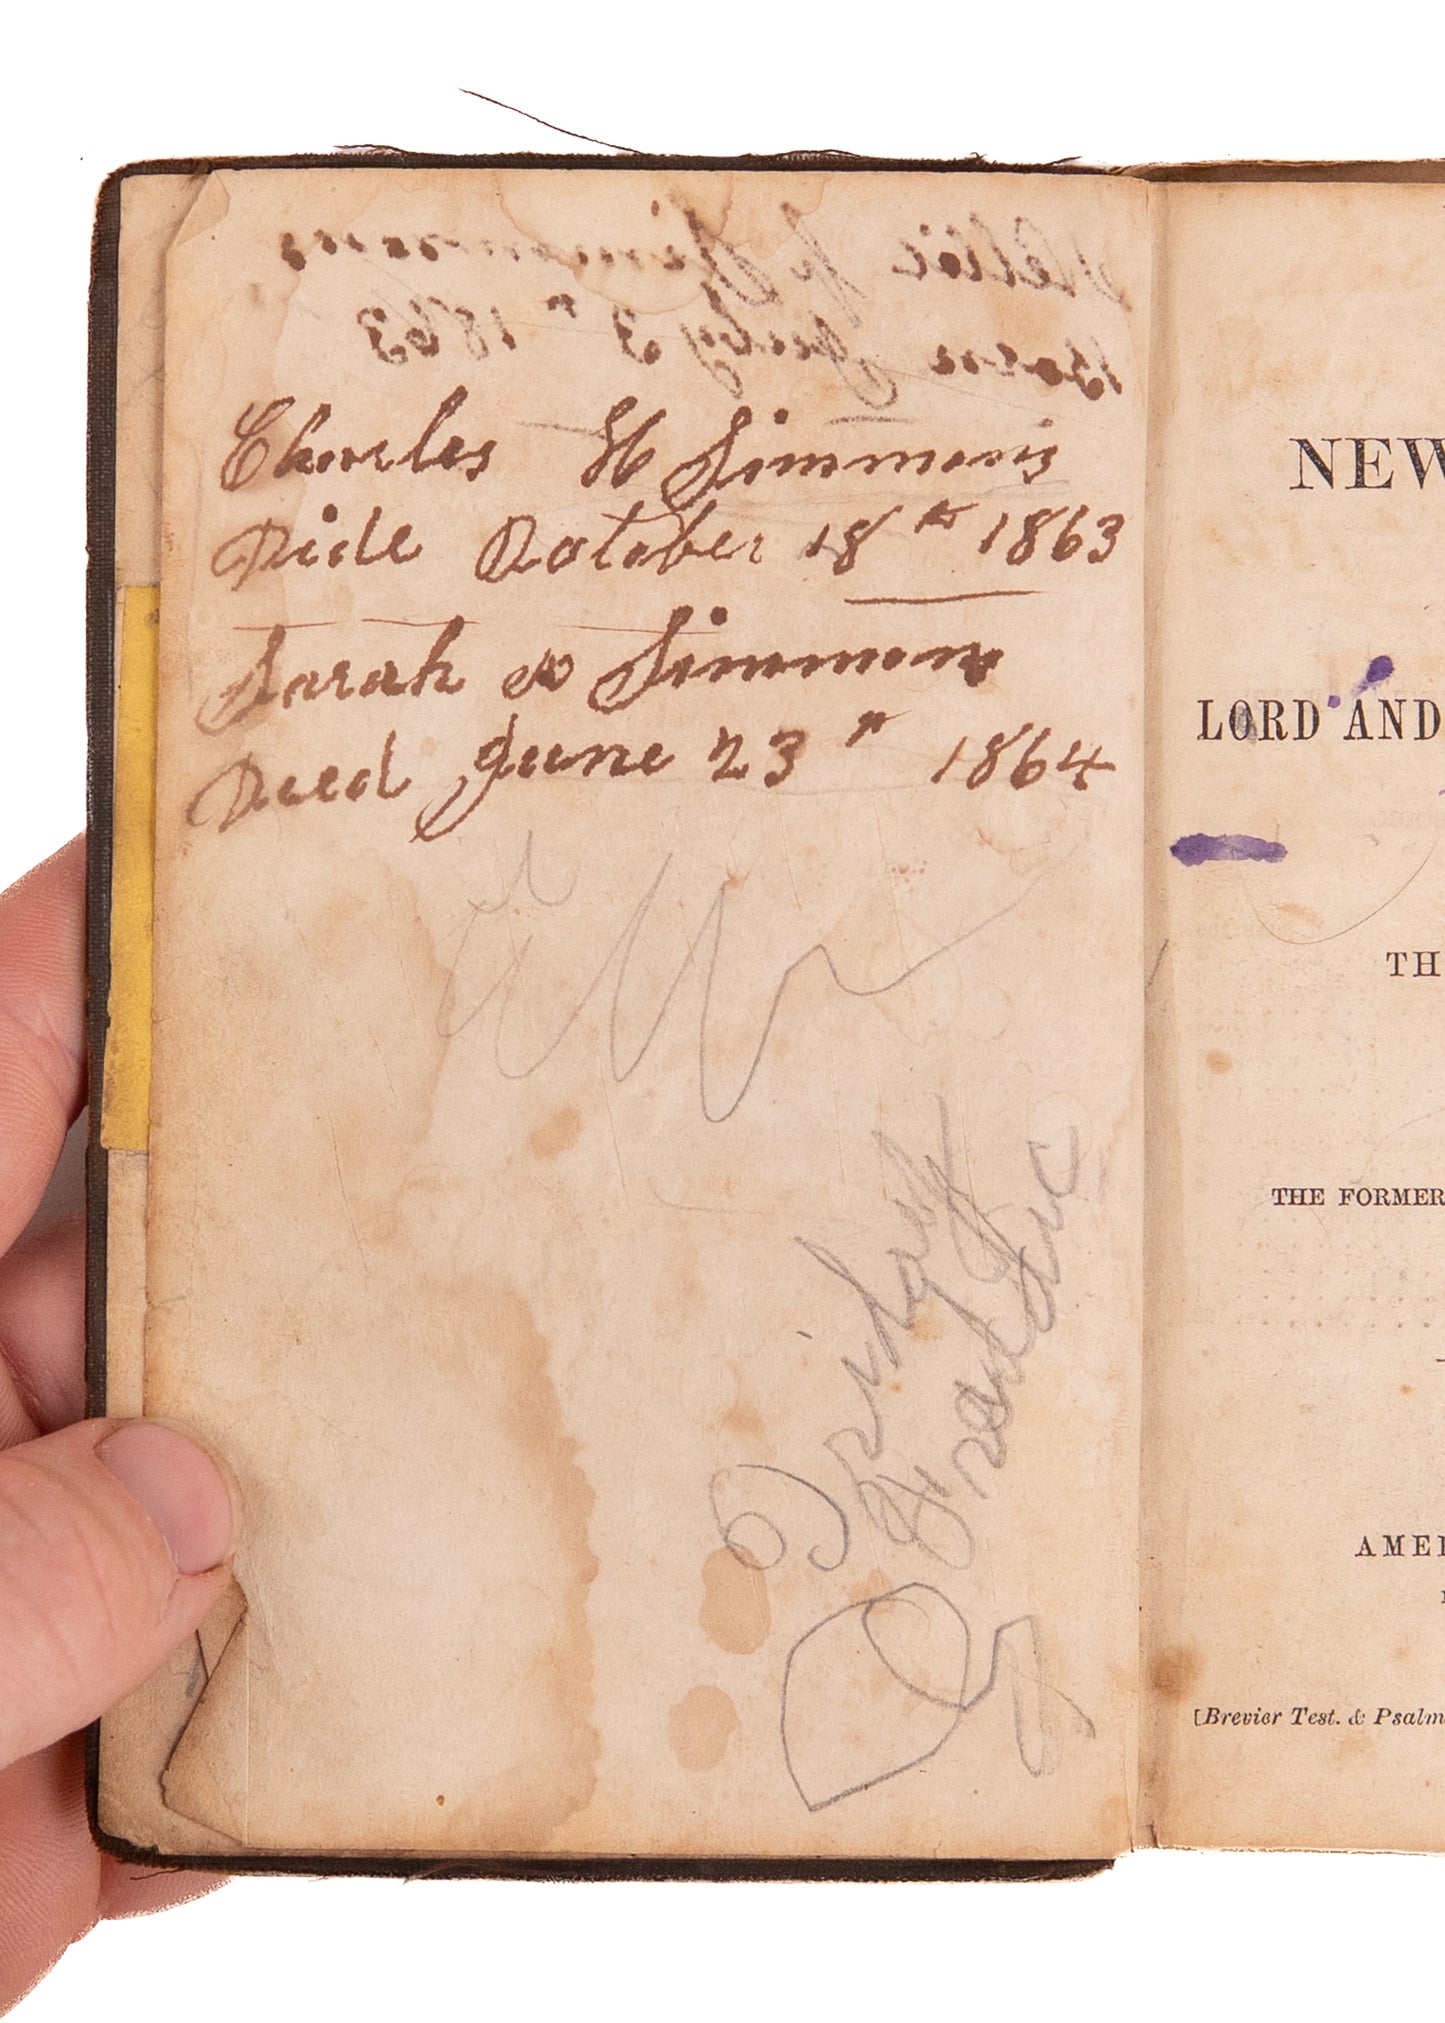 Born July 3 1863
Charles H Simmons
Dide October 18th 1863
Sarah Simmons
Deed June 23 1864
NEW
LORD AND
TH
THE FORMER
AMER
[Brevier Test. & Psalm